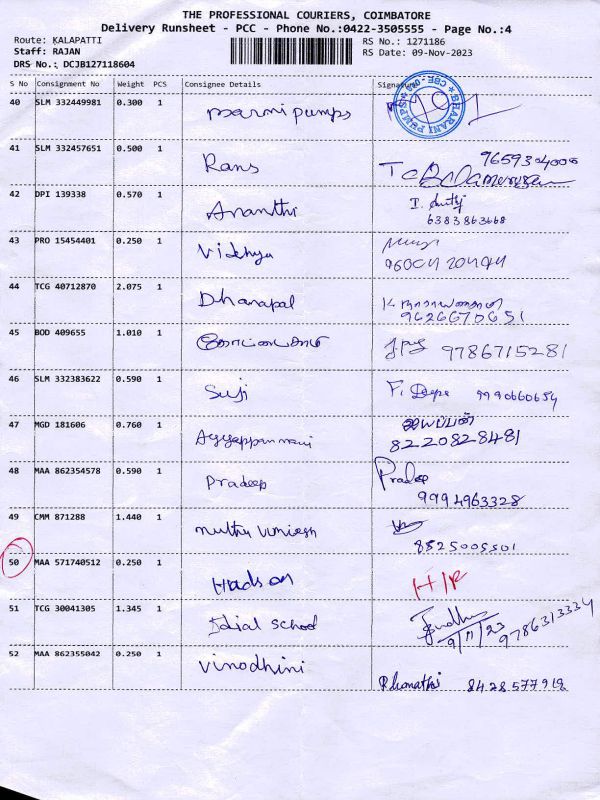 THE PROFESSIONAL COURIERS, COIMBATORE
Delivery Runsheet - PCC - Phone No.:0422-3505555 - Page No.:4
Route: KALAPATTI
Staff: RAJAN
DRS No.: DCJB127118604
RS No.: 1271186
RS Date: 09-Nov-2023
S No Consignment No Weight PCS Consignee Details Signature
40 SLM 332449981 0.300 1 pumps
BHARANI PUMPS
41 SLM 332457651 0.500 1 Rans
42 DPI 139338 0.570 1 Ananthi
6383863668
43 PRO 15454401 0.250 1 Vidhya
44 TCG 40712870 2.075 1 Dhanapal
9626670651
45 BOD 409655 1.010 1
9786715281
46 SLM 332383622 0.590 1 Suji
9990660654
47 MGD 181606 0.760 1 Ayyappanmani ஐயப்பன்
8220828481
48 MAA 862354578 0.590 1 Pradeep Pradeep
9994963328
49 CMM 871288 1.440 1 muthu
8525005501
50 MAA 571740512 0.250 1 Hudson
51 TCG 30041305 1.345 1 Idial School
9/11/23 9786313334
52 MAA 862355042 0.250 1 Vinodhini
8428577912